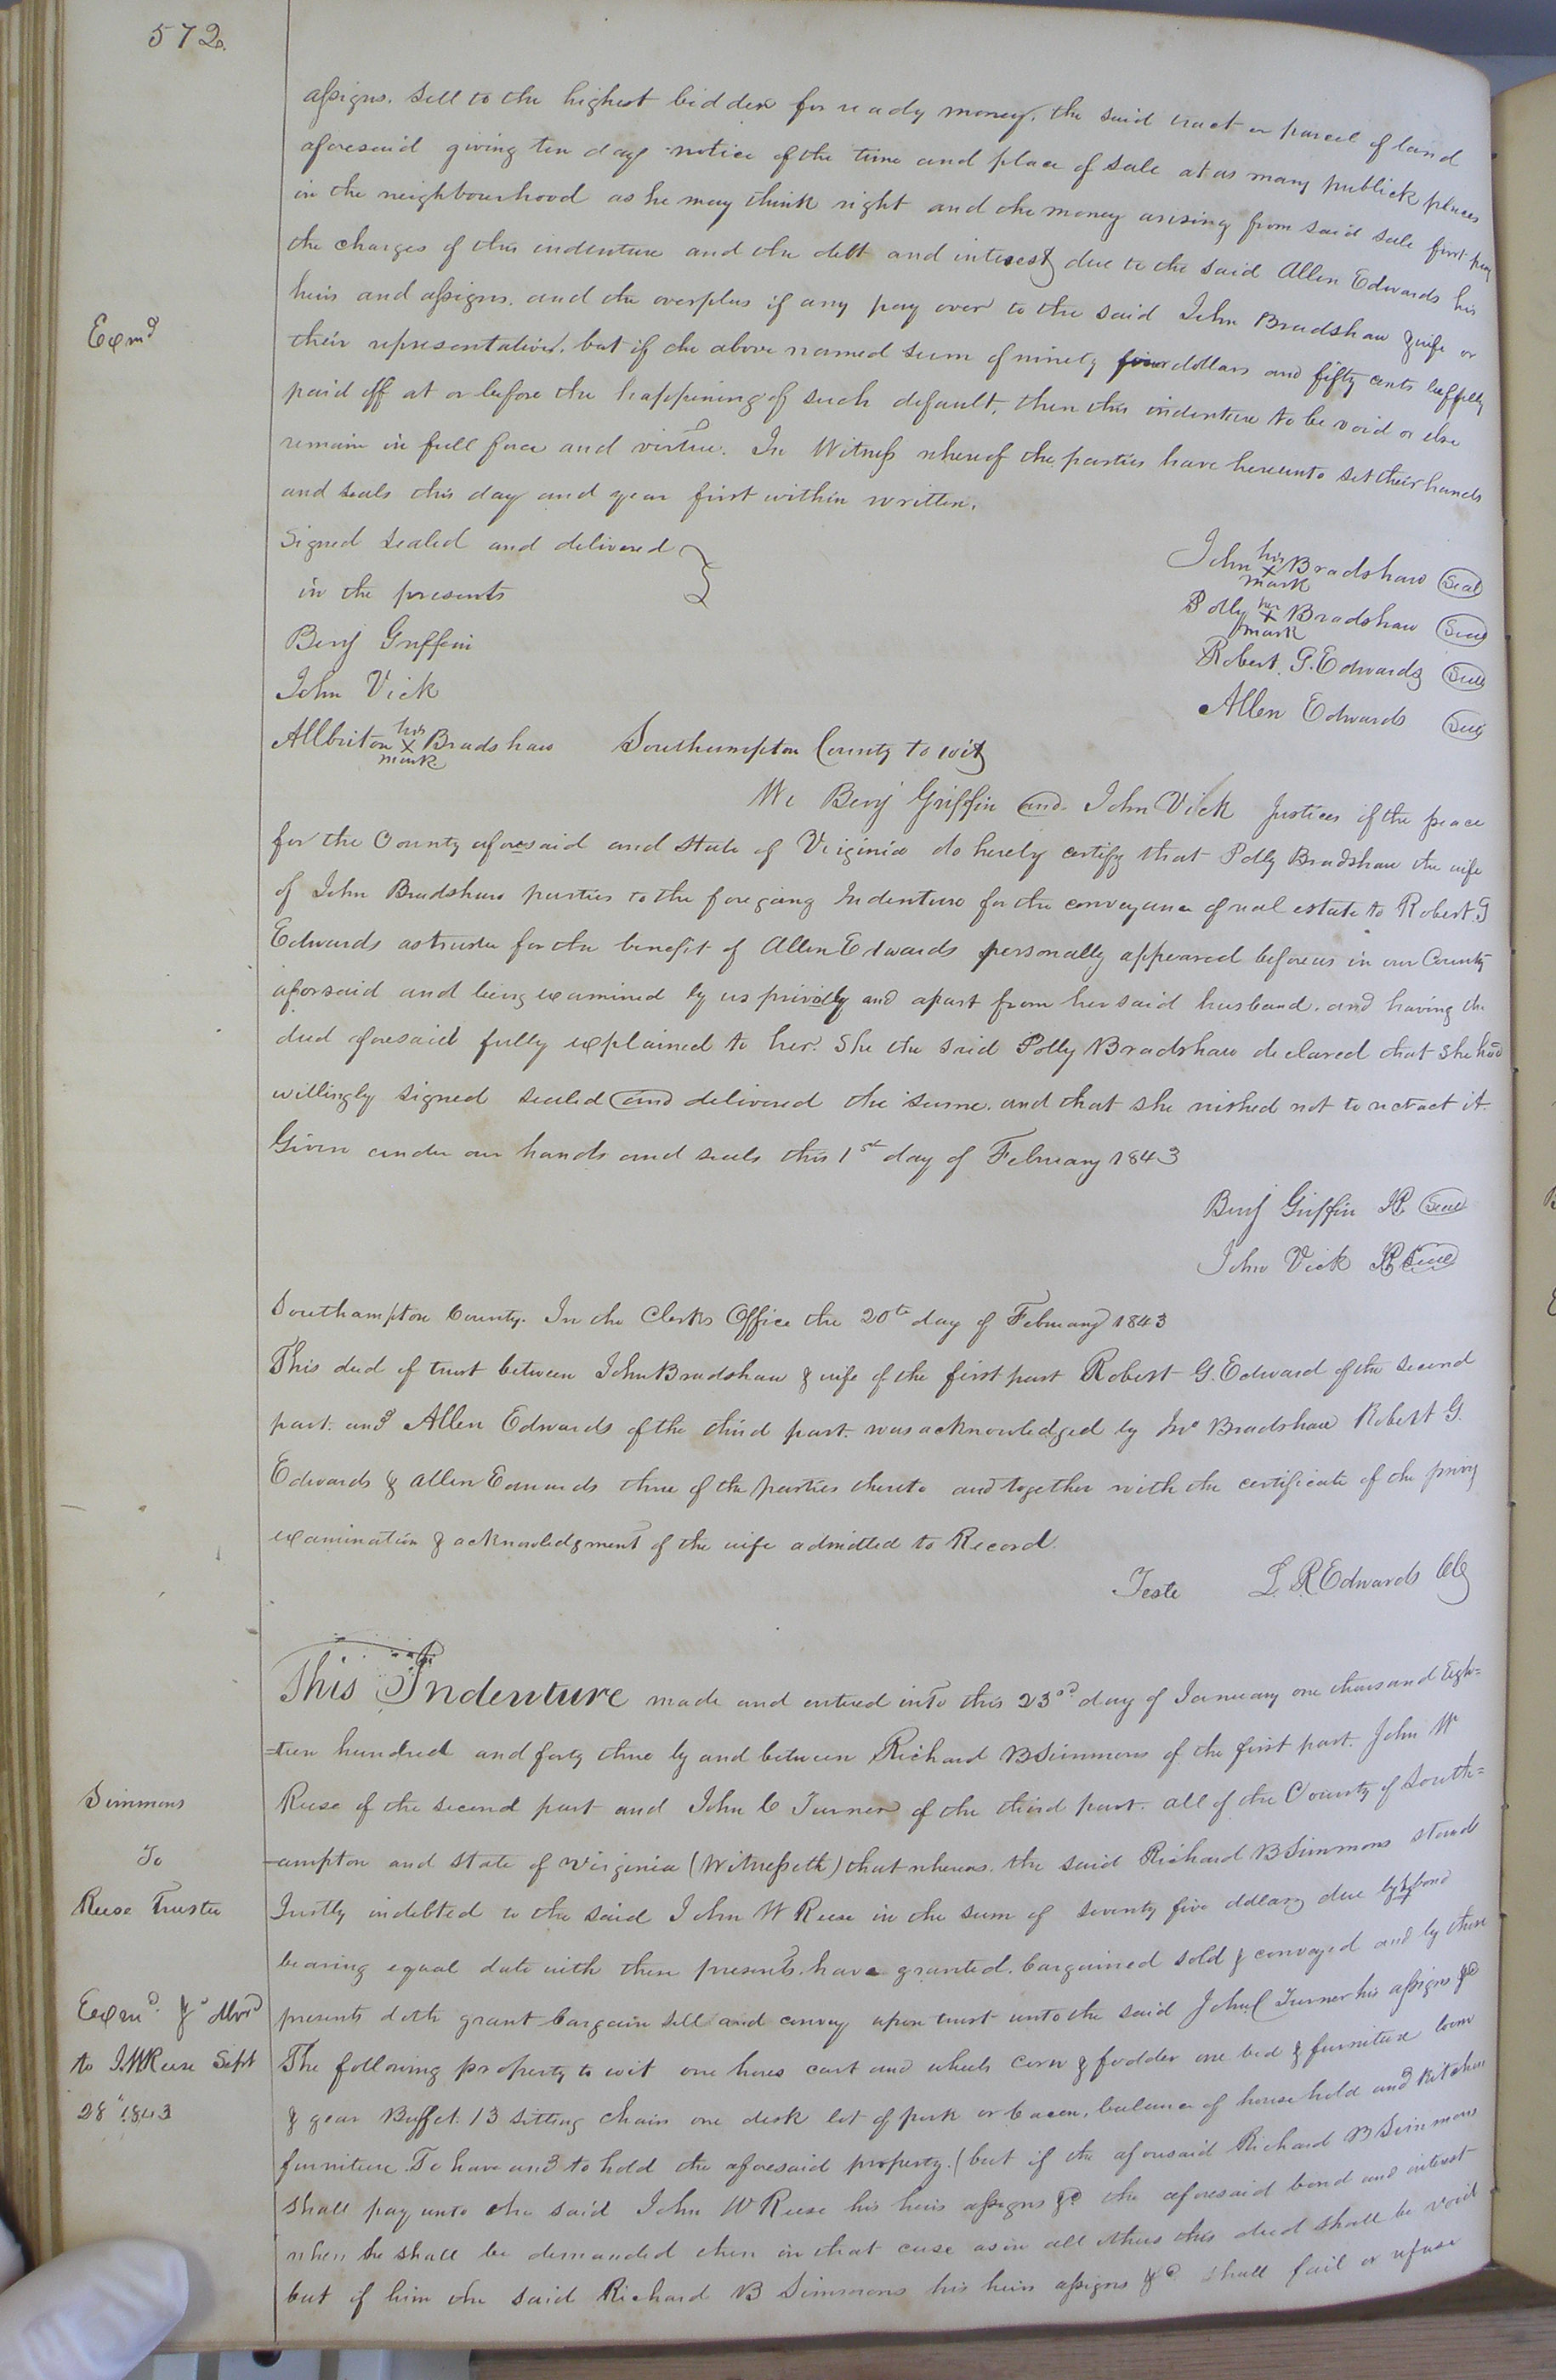 572.
assigns. Sell to the highest bidder for ready money, the said tract or parcel of land
aforesaid giving ten days notice of the time and place of sale at as many publick places
in the neighbourhood as he may think right and the money arising from said sale first pay
the charges of this indenture and the debt and interest due to the said Allen Edwards his
heirs and assigns. and the overplus if any pay over to the said John Bradshaw & wife or
Exmd
their representatives. but if the above named sum of ninety four dollars and fifty cents be fully
paid off at or before the happening of such default, then this indenture to be void or else
remain in full force and virtue. In Witness whereof the parties have hereunto set their hands
and seals this day and year first within written.
Signed sealed and delivered
in the presents
Benj Griffin
John Vick
Allbriton his X mark Bradshaw
John his X mark Bradshaw Seal
Polly her X mark Bradshaw Seal
Robert. G. Edwards Seal
Allen Edwards Seal
Southampton County to wit
We Benj Griffin and John Vick Justices of the peace
for the County aforesaid and State of Virginia do hereby certify that Polly Bradshaw the wife
of John Bradshaw parties to the foregoing Indenture for the conveyance of real estate to Robert. G
Edwards as trustee for the benefit of Allen Edwards personally appeared before us in our County
aforsaid and being examined by us privily and apart from her said husband. and having the
deed aforesaid fully explained to her. She the said Polly Bradshaw declared that she had
willingly signed sealed and delivered the same. and that she wished not to retract it.
Given under our hands and seals this 1st day of February 1843
Benj Griffin JP Seal
John Vick JP Seal
Southampton County. In the Clerks Office the 20th day of February 1843
This deed of trust between John Bradshaw & wife of the first part Robert G. Edward of the second
part. and Allen Edwards of the third part. was acknowledged by Jno Bradshaw Robert G.
Edwards & Allen Edwards three of the parties thereto and together with the certificate of the privy
examination & acknowledgment of the wife admitted to Record.
Teste L. R Edwards
This Indenture made and entered into this 23rd day of January one thousand Eigh=
=teen hundred and forty three by and between Richard B Simmons of the first part. John W
Simmons
Reese of the second part and John C Turner of the third part. all of the County of South=
To
-ampton and State of Virginia (Witnesseth) that whereas. the said Richard B Simmons stands
Reese Trustee
Justly indebted to the said John W Reese in the sum of seventy five dollars due by bond
bearing equal date with these presents. have granted. bargained sold & conveyed and by these
Exmd & dlvrd
presents doth grant bargain sell and convey upon trust unto the said John C Turner his assigns &c
to J.W Reese Sept
The following property to wit one hores cart and wheels corn & fodder one bed & furniture loom
28" 1843
& gear Buffet. 13 sitting chairs one desk lot of pork or bacon. balance of household and kitchen
furniture. To have and to hold the aforesaid property. (but if the aforesaid Richard B Simmons
shall pay unto the said John W Reese his heirs assigns &c the aforesaid bond and interest
when he shall be demanded then in that case as in all others this deed shall be void
but if him the said Richard B Simmons his heirs assigns &c shall fail or refuse